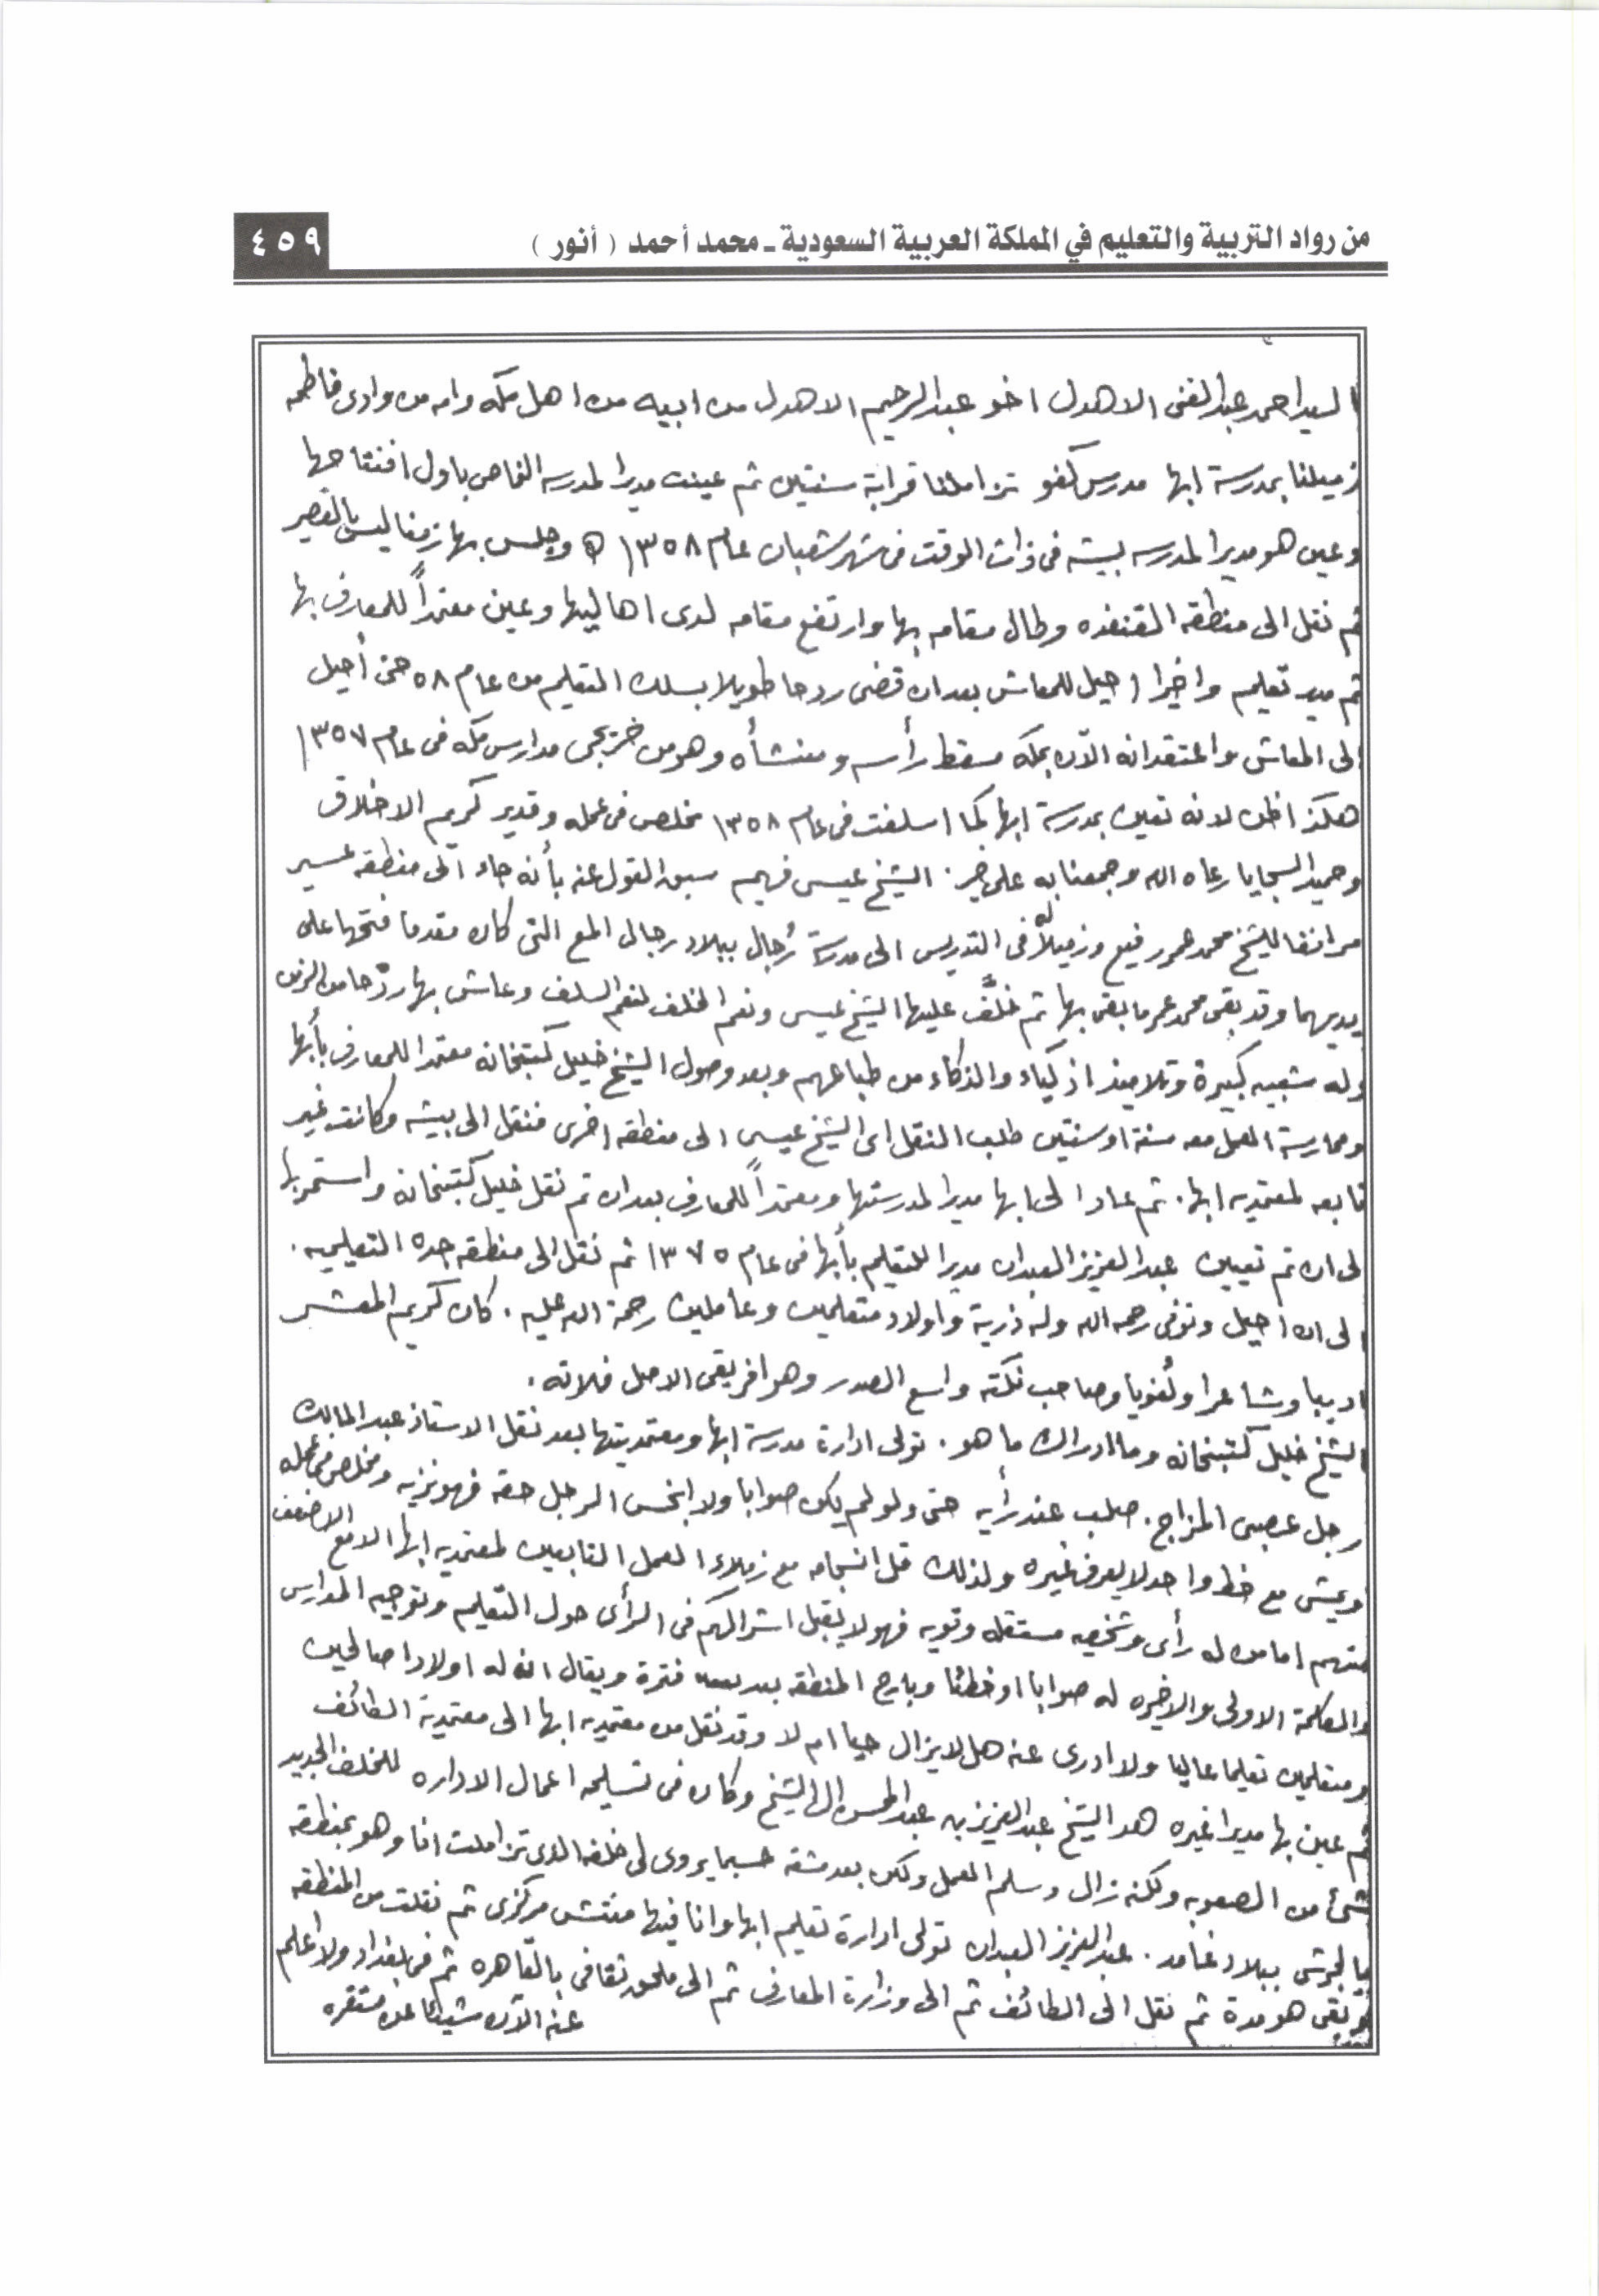 من رواد التربية والتعليم في المملكة العربية السعودية ـ محمد أحمد ( أنور )
٤٥٩
السيد احمد عبدالغنى الاهدل اخو عبدالرحيم الاهدل من ابيه من اهل مكه وامه من وادى فاطمه
زميلنا بمدرسة ابها مدرس كفو تزاملنا قرابة سنتين ثم عينت مديرا لمدرسه النماص باول افتتاحها
وعين هو مديرا لمدرسه بيشه فى ذات الوقت فى شهر شعبان عام ١٣٥٨ ه وجلس بها زمنا ليس بالقصير
ثم نقل الى منطقه القنفذه وطال مقامه بها وارتفع مقامه لدى اهاليها وعين معتمداً للمعارف بها
ثم مدير تعليم واخيرا احيل للمعاش بعد ان قضى ردحا طويلا بسلك التعليم من عام ٥٨ حتى أحيل
الى المعاش واعتقد انه الآن بمكه مسقط رأسه ومنشأه وهو من خريجى مدارس مكه فى عام ١٣٥٧
هكذا اظن لانه تعين بمدرسة ابها كما اسلفت فى عام ١٣٥٨ مخلص فى عمله وقدير كريم الاخلاق
وحميد السجايا رعاه الله وجمعنا به على خير . الشيخ عيسى فهيم سبق القول عنه بأنه جاء الى منطقه عسير
مرافقا للشيخ محمد عمر رفيع وزميلاً له فى التدريس الى مدرسة رُجال ببلاد رجالى المع التى كان مقدما فتحها على
يديهما وقد بقى محمد عمر ما بقى بها ثم خلَّف عليها الشيخ عيسى ونعم الخلف لنعم السلف وعاش بها ردْحا من الزمن
وله شعبيه كبيرة وتلاميذ اذكياء والذكاء من طباعهم وبعد وصول الشيخ خليل كتبخانه معتمدا للمعارف بأبها
وممارسة العمل معه سنة او سنتين طلب النقل اى الشيخ عيسى الى منطقه اخرى فنقل الى بيشه وكانت غير
تابعه لمعتمديه ابها . ثم عاد الى ابها مديرا لمدرستها ومعتمداً للمعارف بعد ان تم نقل خليل كتبخانه واستمر بها
الى ان تم تعيين عبدالعزيز العبدان مديرا للتعليم بأبها فى عام ١٣٧٥ ثم نقل الى منطقه جده التعليميه .
الى ان احيل وتوفى رحمه الله وله ذرية واولاد متعلمين وعاملين رحمة الله عليه . كان كريم المعشر
اديبا وشاعرا ولُغويا وصاحب نكته واسع الصدر وهو افريقى الاصل فلاته .
الشيخ خليل كتبخانه وما ادراك ما هو . تولى ادارة مدرسة ابها ومعتمديتها بعد نقل الاستاذ عبدالمالك
رجل عصبى المزاج . صلب عند رأيه حتى ولو لم يكن صوابا ولا ابخس الرجل حقه فهو نزيه ومخلص فى عمله
ويمشى مع خط واحد لا يعرف غيره ولذلك قل انسجامه مع زملاء العمل التابعين لمعتمديه ابها الا مع الاضعف
منهم اما من له رأى وشخصيه مستقله وقويه فهو لا يقبل اشراكهم فى الرأى حول التعليم وتوجيه المدارس
والكلمة الاولى والاخيره له صوابا او خطئا وبارح المنطقه بعد فترة ويقال ان له اولادا صالحين
ومتعلمين تعليما عاليا ولا ادرى عنه هل لايزال حيا ام لا وقد نقل من معتمديه ابها الى معتمدية الطائف
ثم عين بها مديرا غيره هو الشيخ عبدالعزيز بن عبدالمحسن ال الشيخ وكان فى تسليمه اعمال الاداره للخلف الجديد
شئ من الصعوبه ولكنه زال وسلم العمل ولكن بعد مشقه حسبما يروى لى خلفه الذى تزاملت انا وهو بمنطقه
بالجرشى ببلاد غامد . عبدالعزيز العبدان تولى ادارة تعليم ابها وانا فيها مفتش مركزى ثم نقلت من المنطقه
وبقى هو مدة ثم نقل الى الطائف ثم الى وزارة المعارف ثم الى ملحق ثقافى بالقاهره ثم فى بغداد ولا اعلم
عنه الآن شيئا عن مستقره